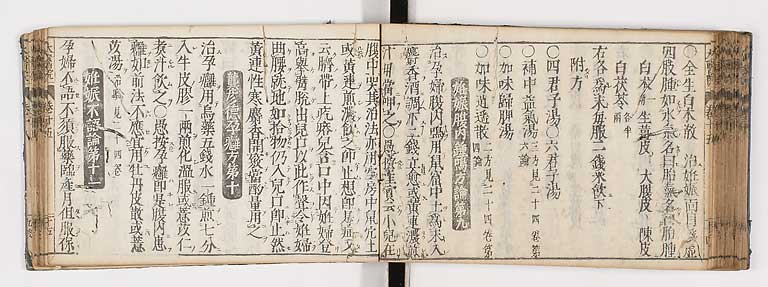 ○全生白朮散 治妊娠面目虛浮
四肢腫如水氣名曰胎腫
白朮一兩 生薑皮 大腹皮 陳皮
白茯苓 各半兩
右各為末每服二錢米飲下
附方
○四君子湯 ○六君子湯
○補中益氣湯 三方見二十四卷第六論
○加味歸脾湯
○加味逍遙散 二方見二十四卷第四論
妊娠腹內鐘鳴方論第九
治孕婦腹內鐘鳴用鼠窟中土為末入
麝香酒調下二錢立愈或黃連濃煎
汁時當呷之○愚按 小兒在
腹中哭其治法亦用空房中鼠穴土
或黃連煎濃飲之即止想即是症又
云臍帶上疙瘩兒含口中因妊婦登
高舉臂脫出兒口以此作聲令妊婦
曲腰就地如拾物仍入兒口即止然
黃連性寒麝香開竅當酌量用之
孕癰方第十
治孕癰用烏藥五錢水一鍾煎七分
入牛皮膠一兩煎化溫服或薏苡仁
煮汁飲之○愚按孕癰即是腹內患
癰如前法不應宜用牡丹皮散或薏
苡湯 方見二十四卷
妊娠不語論第十二
孕婦不語不須服藥臨產月但服保